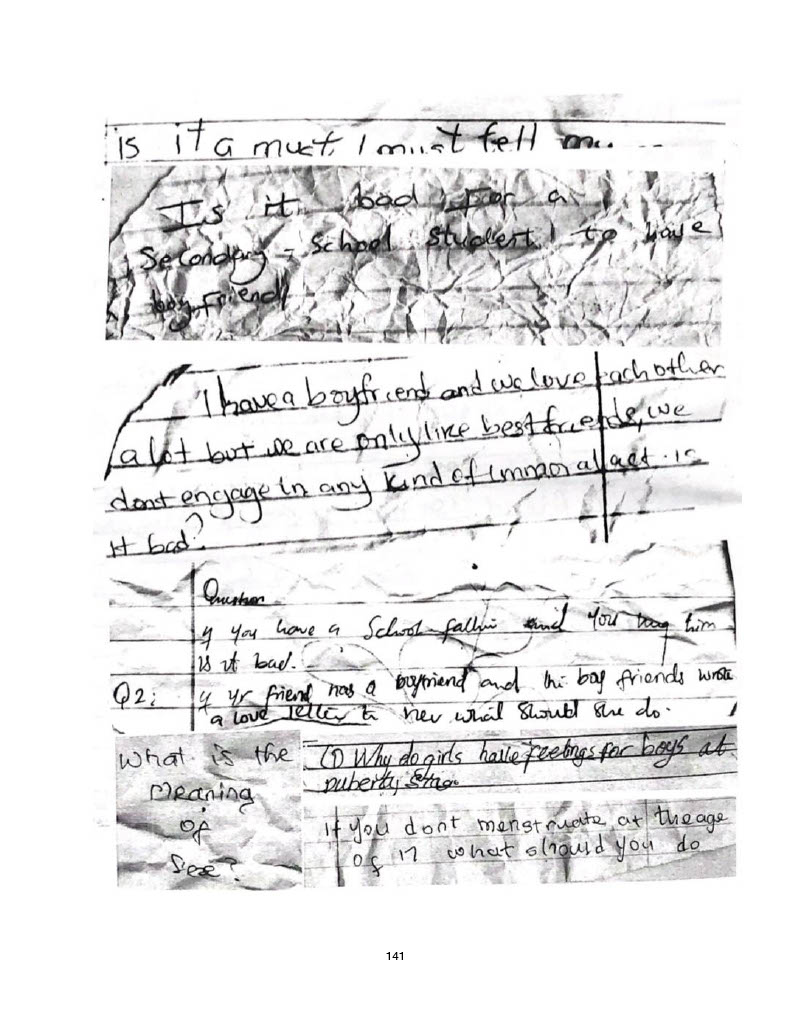 is it a must I must tell
Is it bad For a
Secondary - School student to have
boy friend
I have a boyfriend and we love each other
a lot but we are only like best friends, we
dont engage in any kind of immoral act. is
it bad?
Question
if you have a School and You hug him
is it bad.
Q2: if yr friend has a boyfriend and the boy friends wrote
a love letter to her what should she do.
What is the
Meaning
of
Sex?
(1) Why do girls have feelings for boys at
puberty stage
If you dont menstruate at the age
of 17 what should you do
141